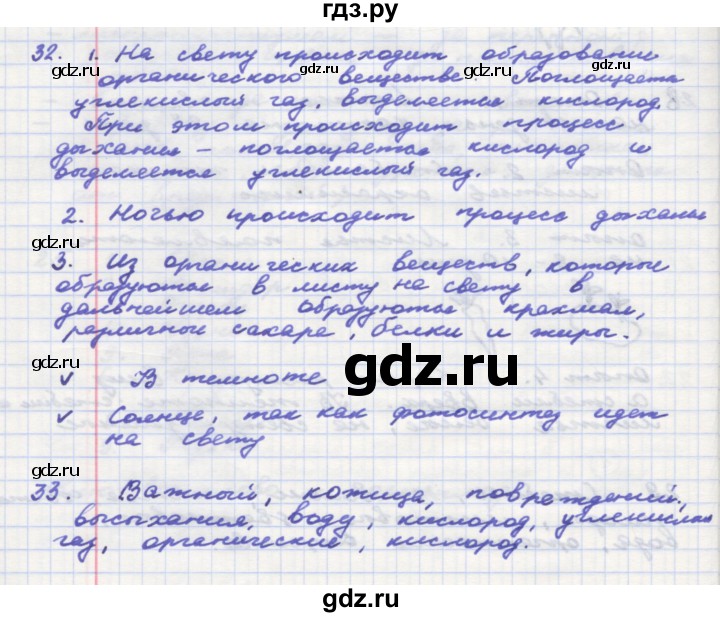 гдз.ру
32. 1. На свету происходит образовании
gdz.ru gdz.ru
органического вещества. Поглощается
углекислый газ, выделяется кислород
gdz.ru gdz.ru
При этом происходит процесс
дыхания – поглощается кислород и
выделяется углекислый газ.
2. Ночью происходит процесс дыханья
gdz.ru gdz.ru
3. Из органических веществ, которые
образуются в листу на свету в
дальнейшем образуются крахмал,
различные сахара, белки и жиры.
gdz.ru
gdz.ru
v В темноте
v Солнце, так как фотосинтез идет
на свету
gdz.ru gdz.ru
33. Важный, кожица, повреждений,
высыхания, воду, кислород, углекислый
газ, органические, кислород.
gdz.ru gdz.ru
gdz.ru